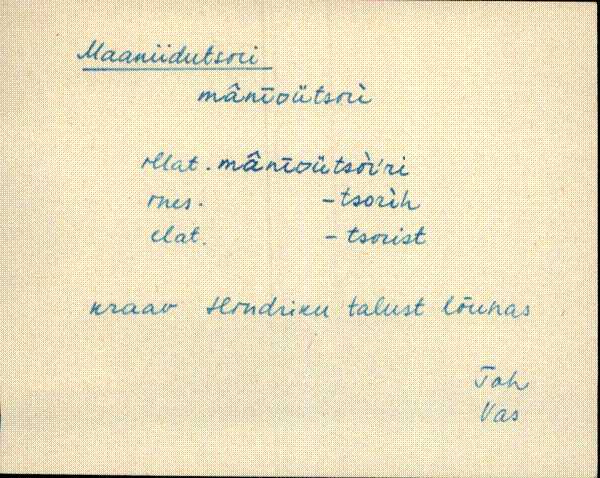 Maaniidutsori
mânīDütsoŕì
illat. mânīDütsòŕ'ri
ines. - tsoŕìh
elat. - tsorist
kraav Hindriku talust lõunas
Joh
Vas